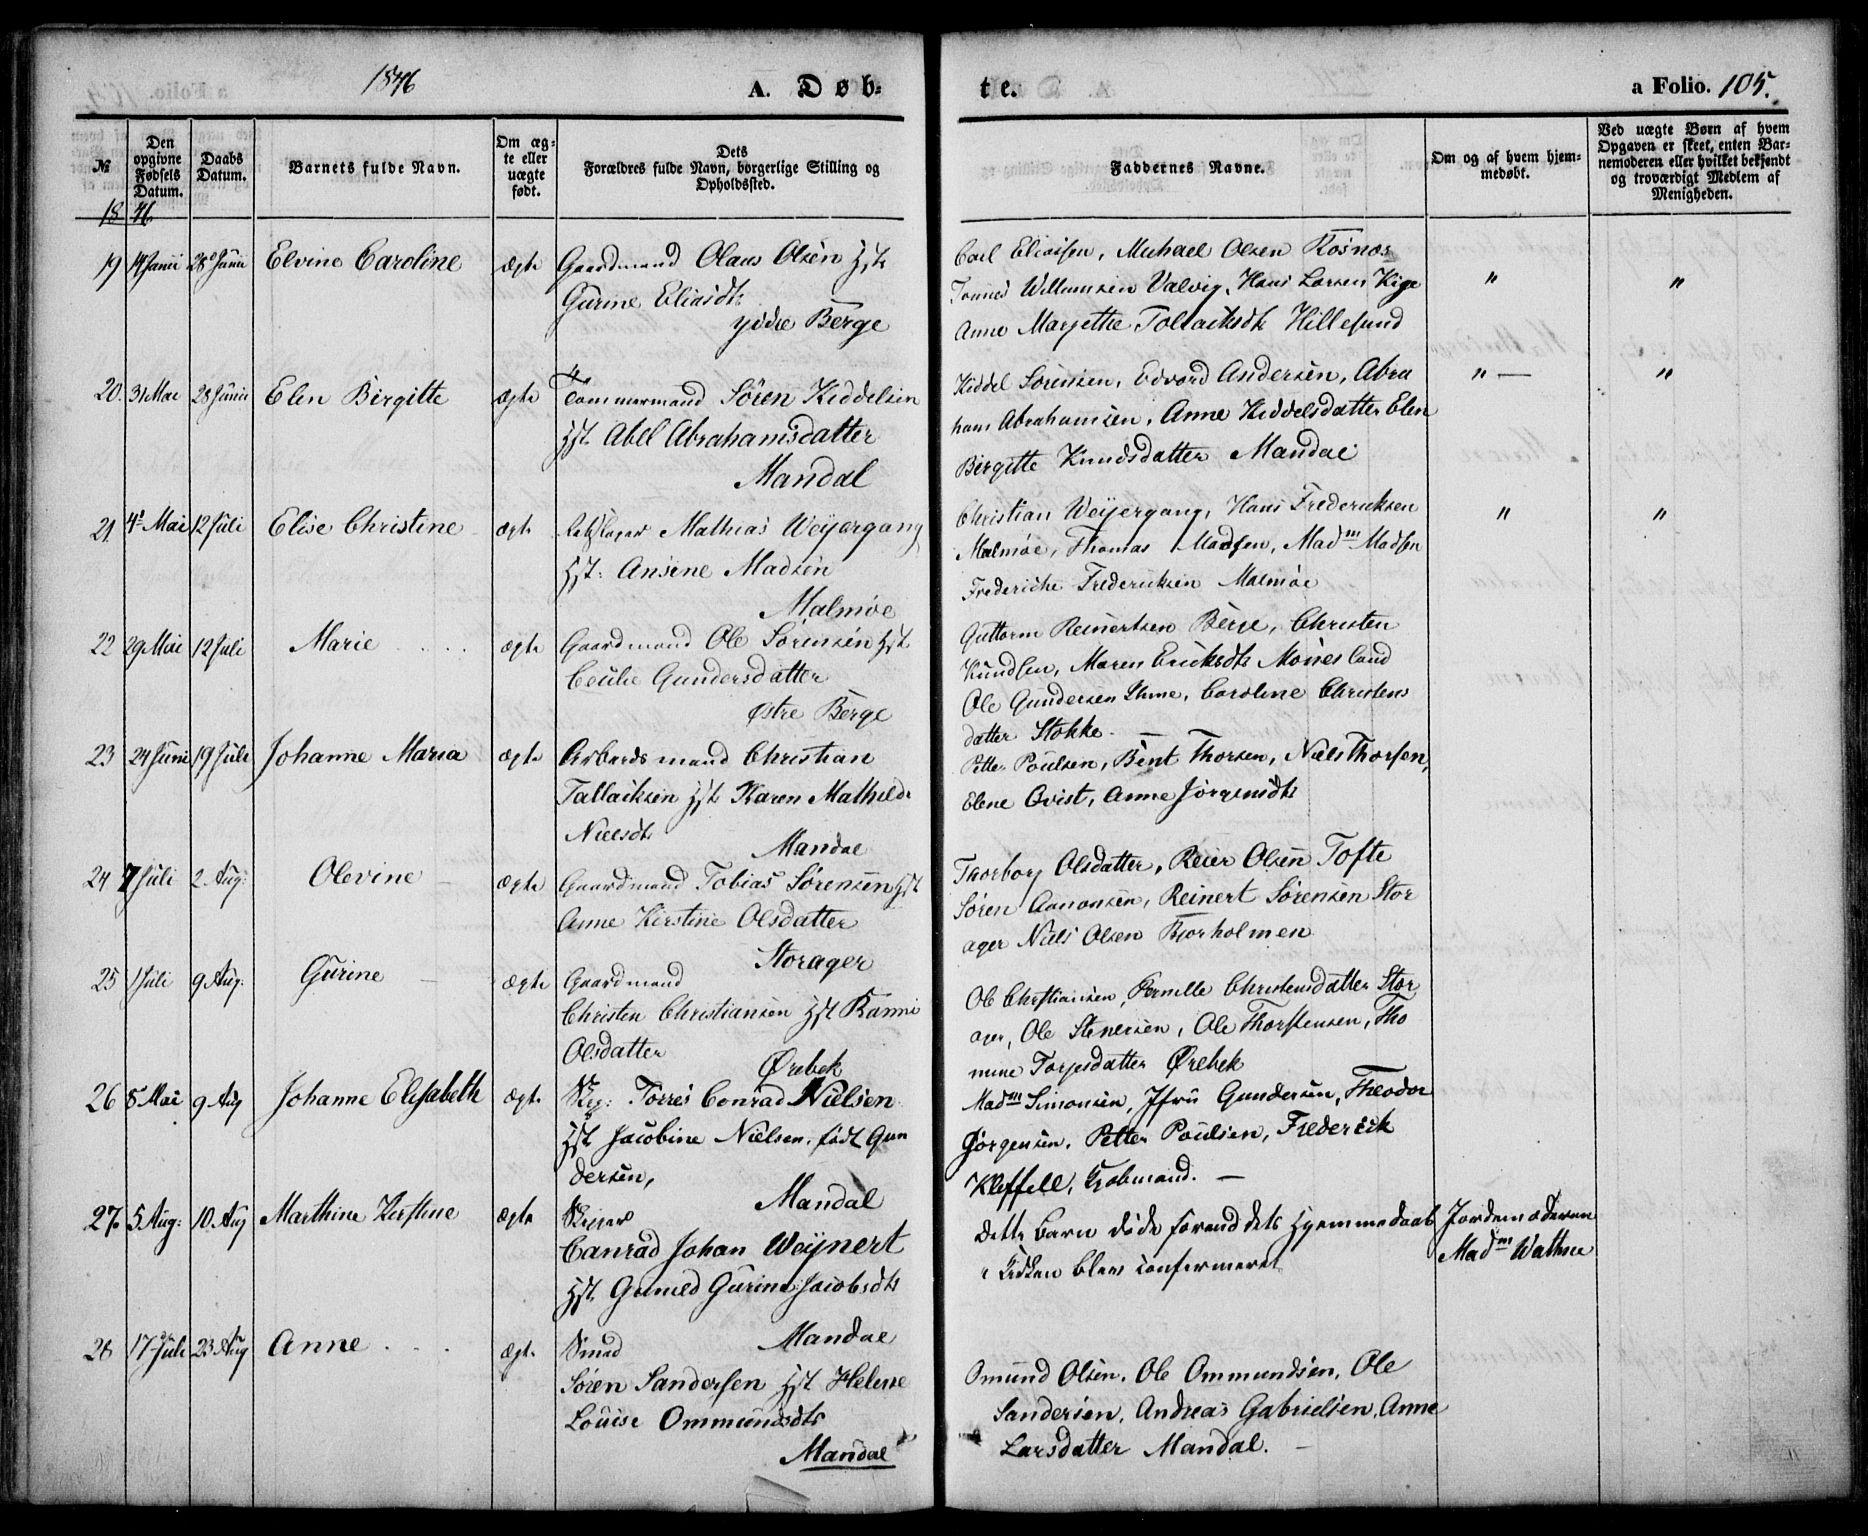 1846
A. Døb-
te.
a Folio. 105.
№
Den opgivne Fødsels Datum.
Daabs Datum.
Barnets fulde Navn.
Om ægte eller uægte født.
Dets Forældres fulde Navn, borgerlige Stilling og Opholdssted.
Faddernes Navne.
Om og af hvem hjemmedøbt.
Ved uægte Børn af hvem Opgaven er skeet, enten Barnemoderen eller hvilket bekjendt og troværdigt Medlem af Menigheden.
1846
19 14 Junii 28 Junii Elvine Caroline ægte Gaardmand Olaus Olsen Hst
Gurine Eliasdt
ydre Berge
Carl Eliassen, Michael Olsen Rosnæs
Tønnes Willumsen Valvig, Hans Larsen Kige
Anne Margethe Tollaksdt Hillesund
" "
20. 31 Mai 28 Junii Elen Birgitte ægte Tømmermand Sören Kiddelsen
Hst. Abel Abrahamsdatter
Mandal
Kiddel Sørensen, Edvard Andersen, Abra
ham Abrahamsen, Anne Kiddelsdatter Elen
Birgitte Knudsdatter Mandal
" — "
21. 4 Mai 12 Juli Elise Christine ægte Mathias Weyergang
Hst: Ansine Madsen
Malmøe
Christian Weyergang, Hans Fredericksen
Malmøe, Thomas Madsen, Madm Madsen
Frederiche Fredericksen Malmøe
" "
22 29 Mai 12 Juli Marie ægte Gaardmand Ole Sørensen Hst
Cecilie Gundersdatter
Østre Berge
Guttorm Reinertsen Berge, Christen
Knudsen, Maren Ericksdt Mønesland
Ole Gundersen Ihme, Caroline Christens
datter Stokke. —
23 24 Juni 19 Juli Johanne Maria ægte Arbeidsmand Christian
Tallaksen Hst Karen Mathilde
Nielsdt
Mandal
Petter Poulsen, Bent Thorsen, Niels Thorsen,
Elene Qvist, Anne Jörgensdt
24 7 Juli 2. Aug: Olevine — ægte Gaardmand Tobias Sørensen Hst
Anne Kirstine Olsdatter
Storager
Thorborg Olsdatter, Reier Olsen Tofte
Søren Aanonsen, Reinert Sørensen Stor
ager Niels Olsen Bjorholmen
25 1 Juli 9 Aug: Gurine — ægte Gaardmand
Christen Christiansen Hst Ranni
Olsdatter
Ørebek
Ole Christiansen, Pernelle Christensdatter Stor
ager, Ole Stenersen, Ole Thorstensen, Tho
mine Torjesdatter Ørebek
26 8 Mai 9 Aug Johanne Elisabeth ægte Torres Conrad Nielsen
Hst Jacobine Nielsen, født Gun
dersen,
Mandal
Madm Simonsen, Jfru Gundersen, Theodor
Jørgensen, Petter Poulsen, Frederick
Kleffell, Kjøbmand. —
27. 5 Aug: 10 Aug Marthine Kirstine ægte Skipper
Conrad Johan Weynert
Hst Gunild Gurine Jacobsdt
Mandal
Dette Barn døde førend dets Hjemmedaab
i Kirken blev confirmeret
Jordemoderen
Madm Wathne
28 17 Juli 23 Aug Anne ægte Smed
Søren Sandersen Hst Helene
Louise Ommundsdt
Mandal
Omund Olsen, Ole Ommundsen, Ole
Sandersen, Andreas Gabrielsen, Anne
Larsdatter Mandal. —